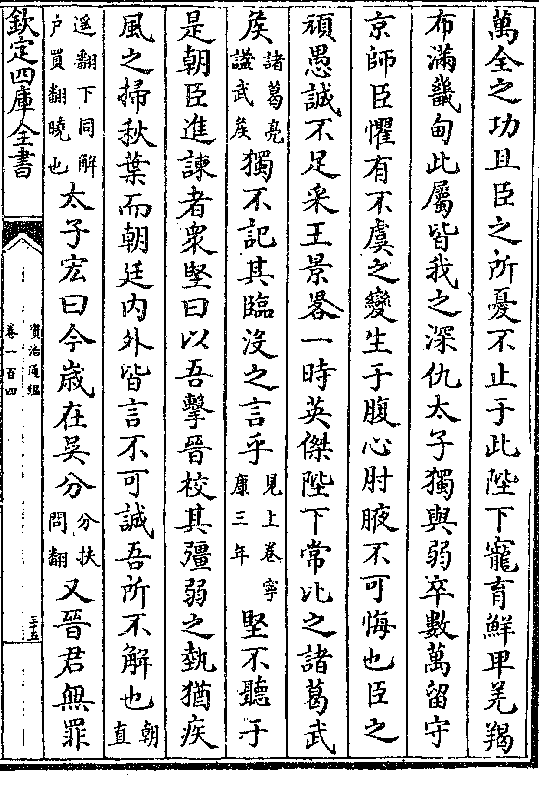 萬全之功且臣之所憂不止于此陛下寵育鮮卑羌羯
布滿畿甸此屬皆我之深仇太子獨與弱卒數萬留守
京師臣懼有不虞之變生于腹心肘腋不可悔也臣之
頑愚誠不足采王景畧一時英傑陛下常比之諸葛武
矦諸葛亮諡武矦獨不記其臨沒之言乎見上卷寧康三年堅不聽于
是朝臣進諫者衆堅曰以吾擊晉校其彊弱之埶猶疾
風之掃秋葉而朝廷內外皆言不可誠吾所不解也朝直
遥翻下同解户買翻曉也太子宏曰今歲在吳分分扶問翻又晉君無罪
欽定四庫全書
資治通鑑
卷一百四
三十五